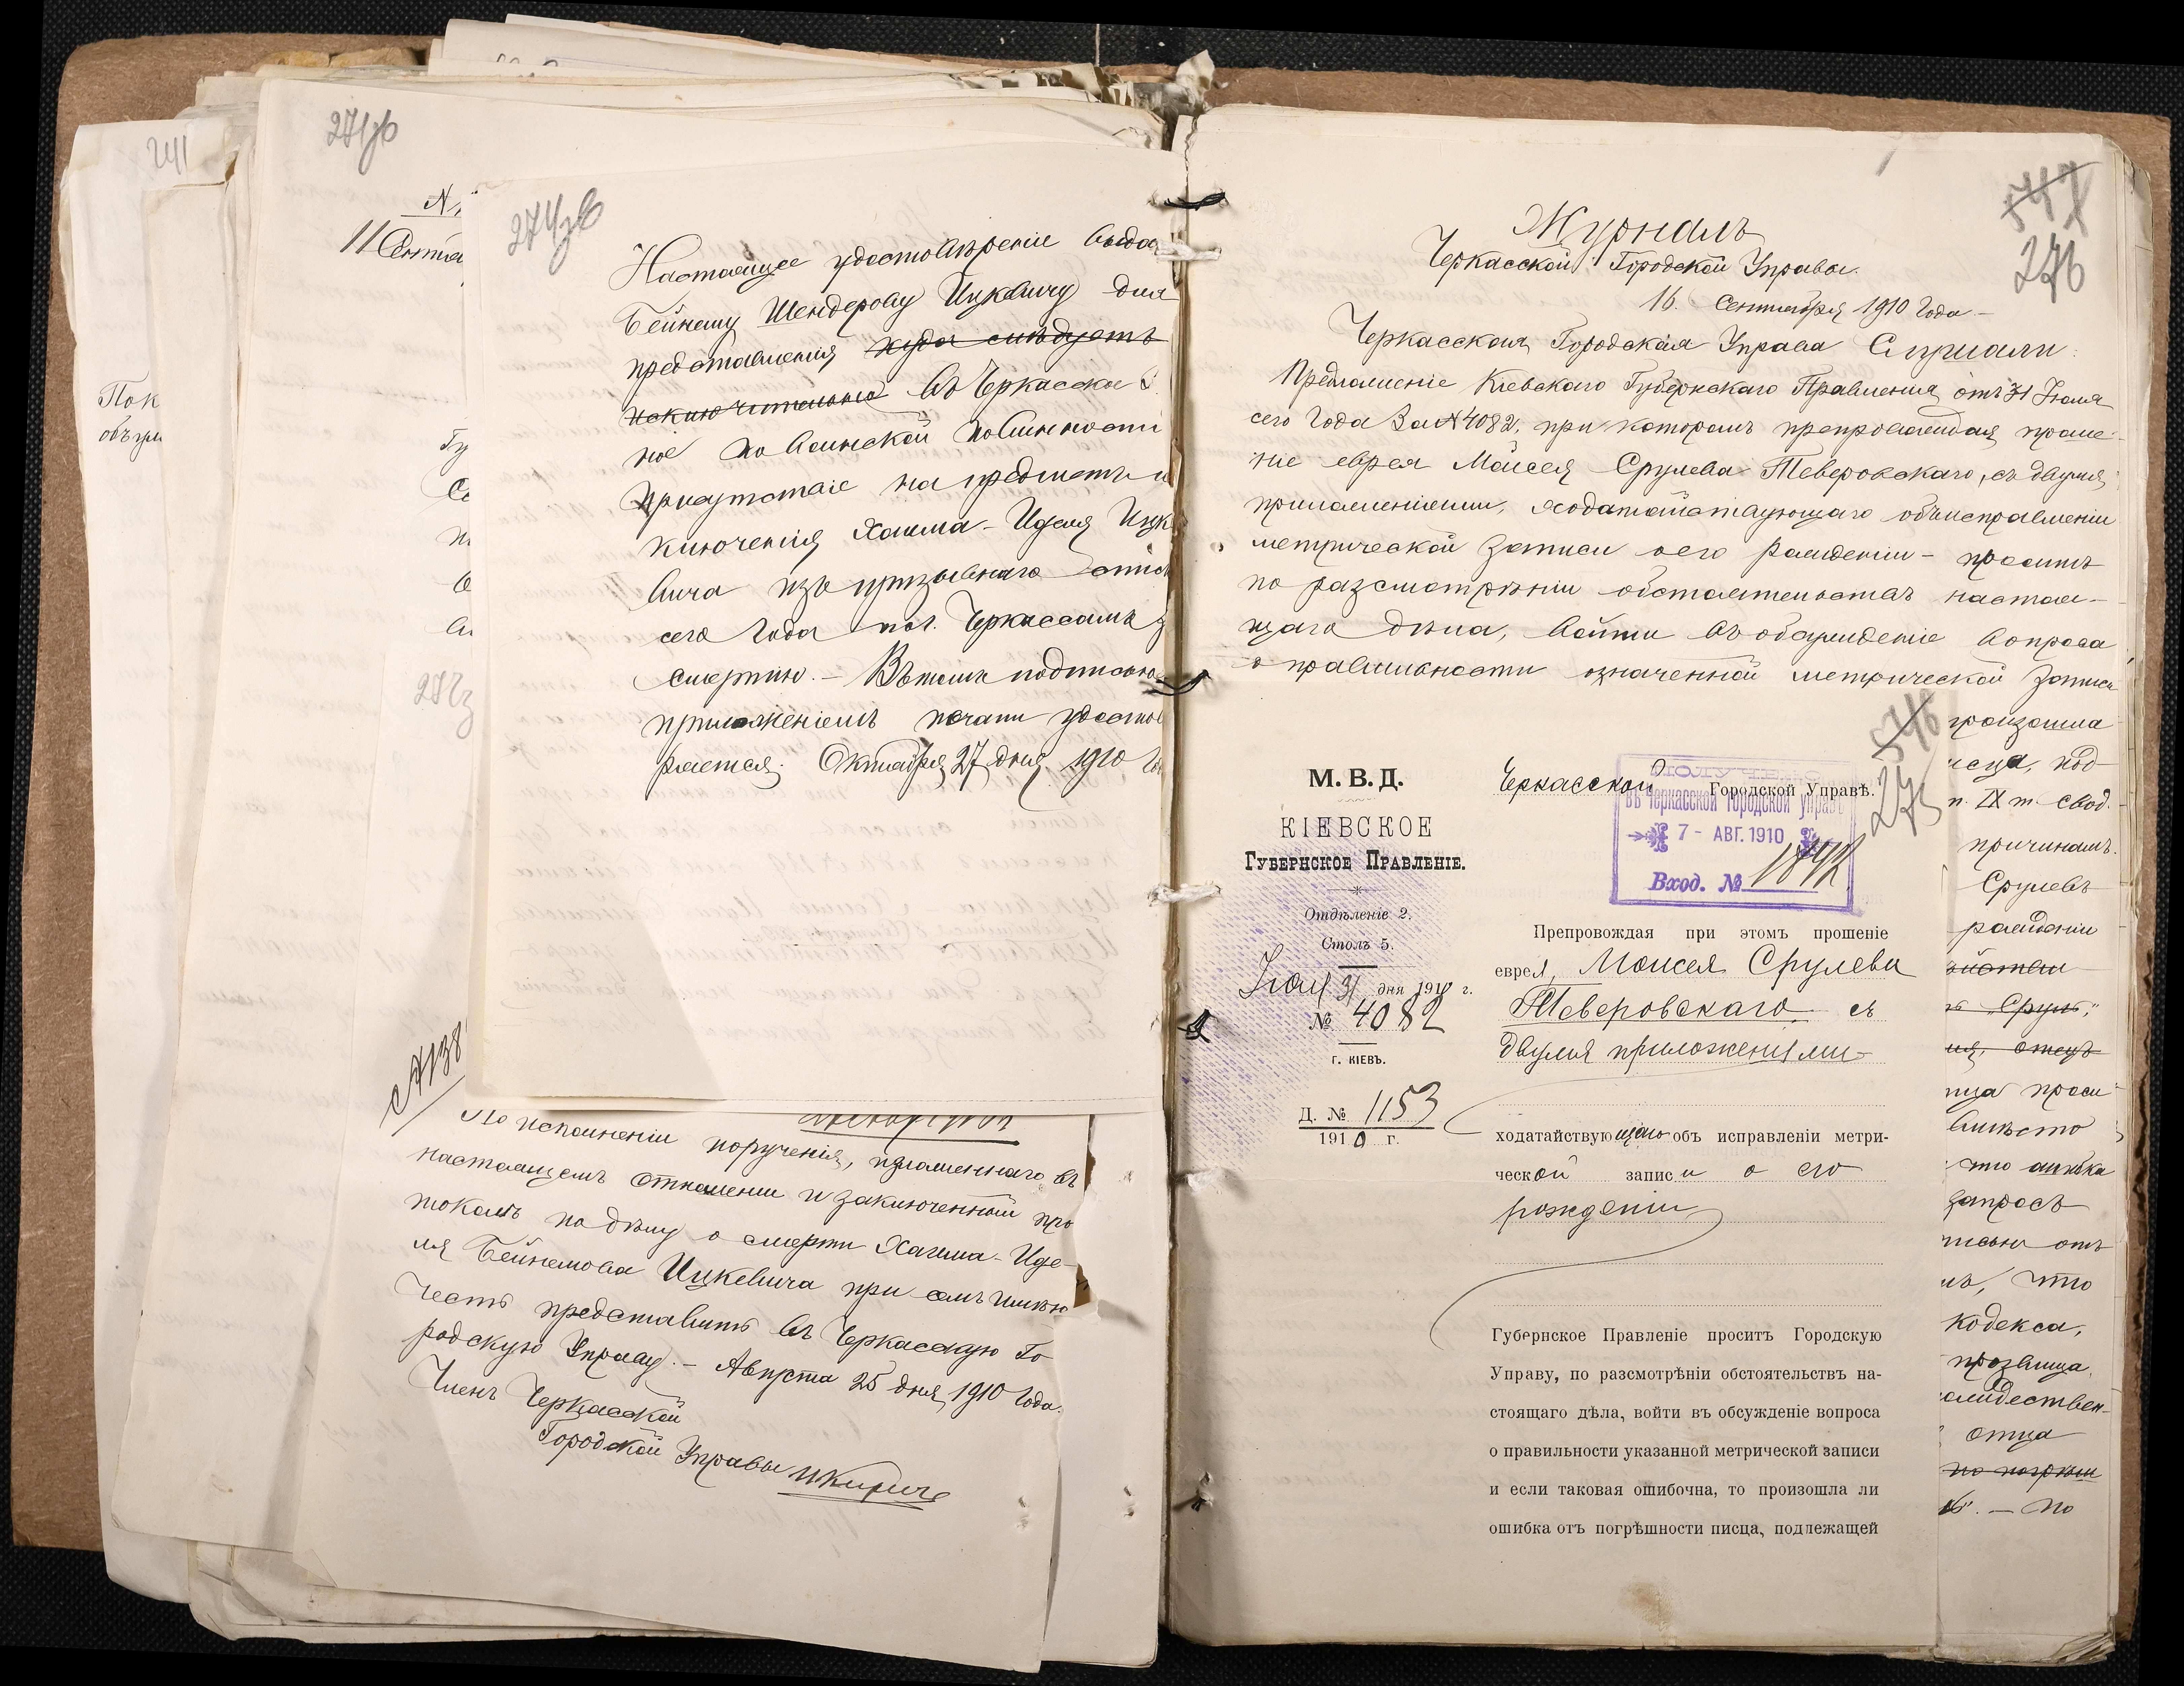 241
Пок
объяв
271зв
11 Сентя
272з
274зв
Настоящее удостовѣреніе выда
Бейнешу Шендерову Ицкевичу для
представленія куда слѣдуетъ
исключительно въ Черкасское
ное по воинской повинности
присутствіе на предметъ и
ключенія Хаима-Иделя Ицк
вича изъ призывнаго спис
сего года по г. Черкассамъ з
смертію. — Въ томъ подписью
приложеніемъ печати удостов
ряется. Октября 27 дня 1910 го
По исполненіи порученія, изложеннаго въ
настоящемъ отношеніи и заключенный про
токолъ по дѣлу о смерти Хаима-Иде-
ля Бейнешова Ицкевича при семъ имѣю
честь представить въ Черкасскую Го
родскую Управу. — Августа 25 дня 1910 года.
Членъ Черкасской
Городской Управы
547
276
Журналъ
Черкасской Городской Управы.
16. Сентября 1910 года. —
Черкасская Городская Управа Слушали:
Предложеніе Кіевскаго Губернскаго Правленія отъ 31 Іюля
сего года за № 4082, при которомъ препровождая проше-
ніе еврея Мойсея Срулева Теверовскаго, съ двумя
приложеніями, ходатайствующаго объ исправленіи
метрической записи о его рожденіи — проситъ
по разсмотрѣніи обстоятельствъ настоя-
щаго дѣла, войти въ обсужденіе вопроса
о правильности означенной метрической записи
произошла
писца, под
п. IX т. Свод.
причинамъ.
Срулевъ
рожденіи
ъ „Сруль",
ия, отецъ
ица проси
вмѣсто
что ошибка
запросъ
писью отъ
мъ, что
кодекса,
прозвища,
ождествен-
отца
по погрѣш
ъ". — По
546
275
М. В. Д.
КІЕВСКОЕ
Губернское Правленіе.
Отдѣленіе 2.
Столъ 5.
Іюля 31 дня 1910 г.
№ 4082
г. КІЕВЪ.
Д. № 1153
1910 г.
Черкасской Городской Управѣ.
ПОЛУЧЕНО
въ Черкасской городской управѣ
7 - АВГ. 1910
Вход. №
Препровождая при этомъ прошеніе
еврея, Моисея Срулева
Теверовскаго съ
двумя приложеніями
ходатайствующаго объ исправленіи метри-
ческой записи о его
рожденіи
Губернское Правленіе проситъ Городскую
Управу, по разсмотрѣніи обстоятельствъ на-
стоящаго дѣла, войти въ обсужденіе вопроса
о правильности указанной метрической записи
и если таковая ошибочна, то произошла ли
ошибка отъ погрѣшности писца, подлежащей